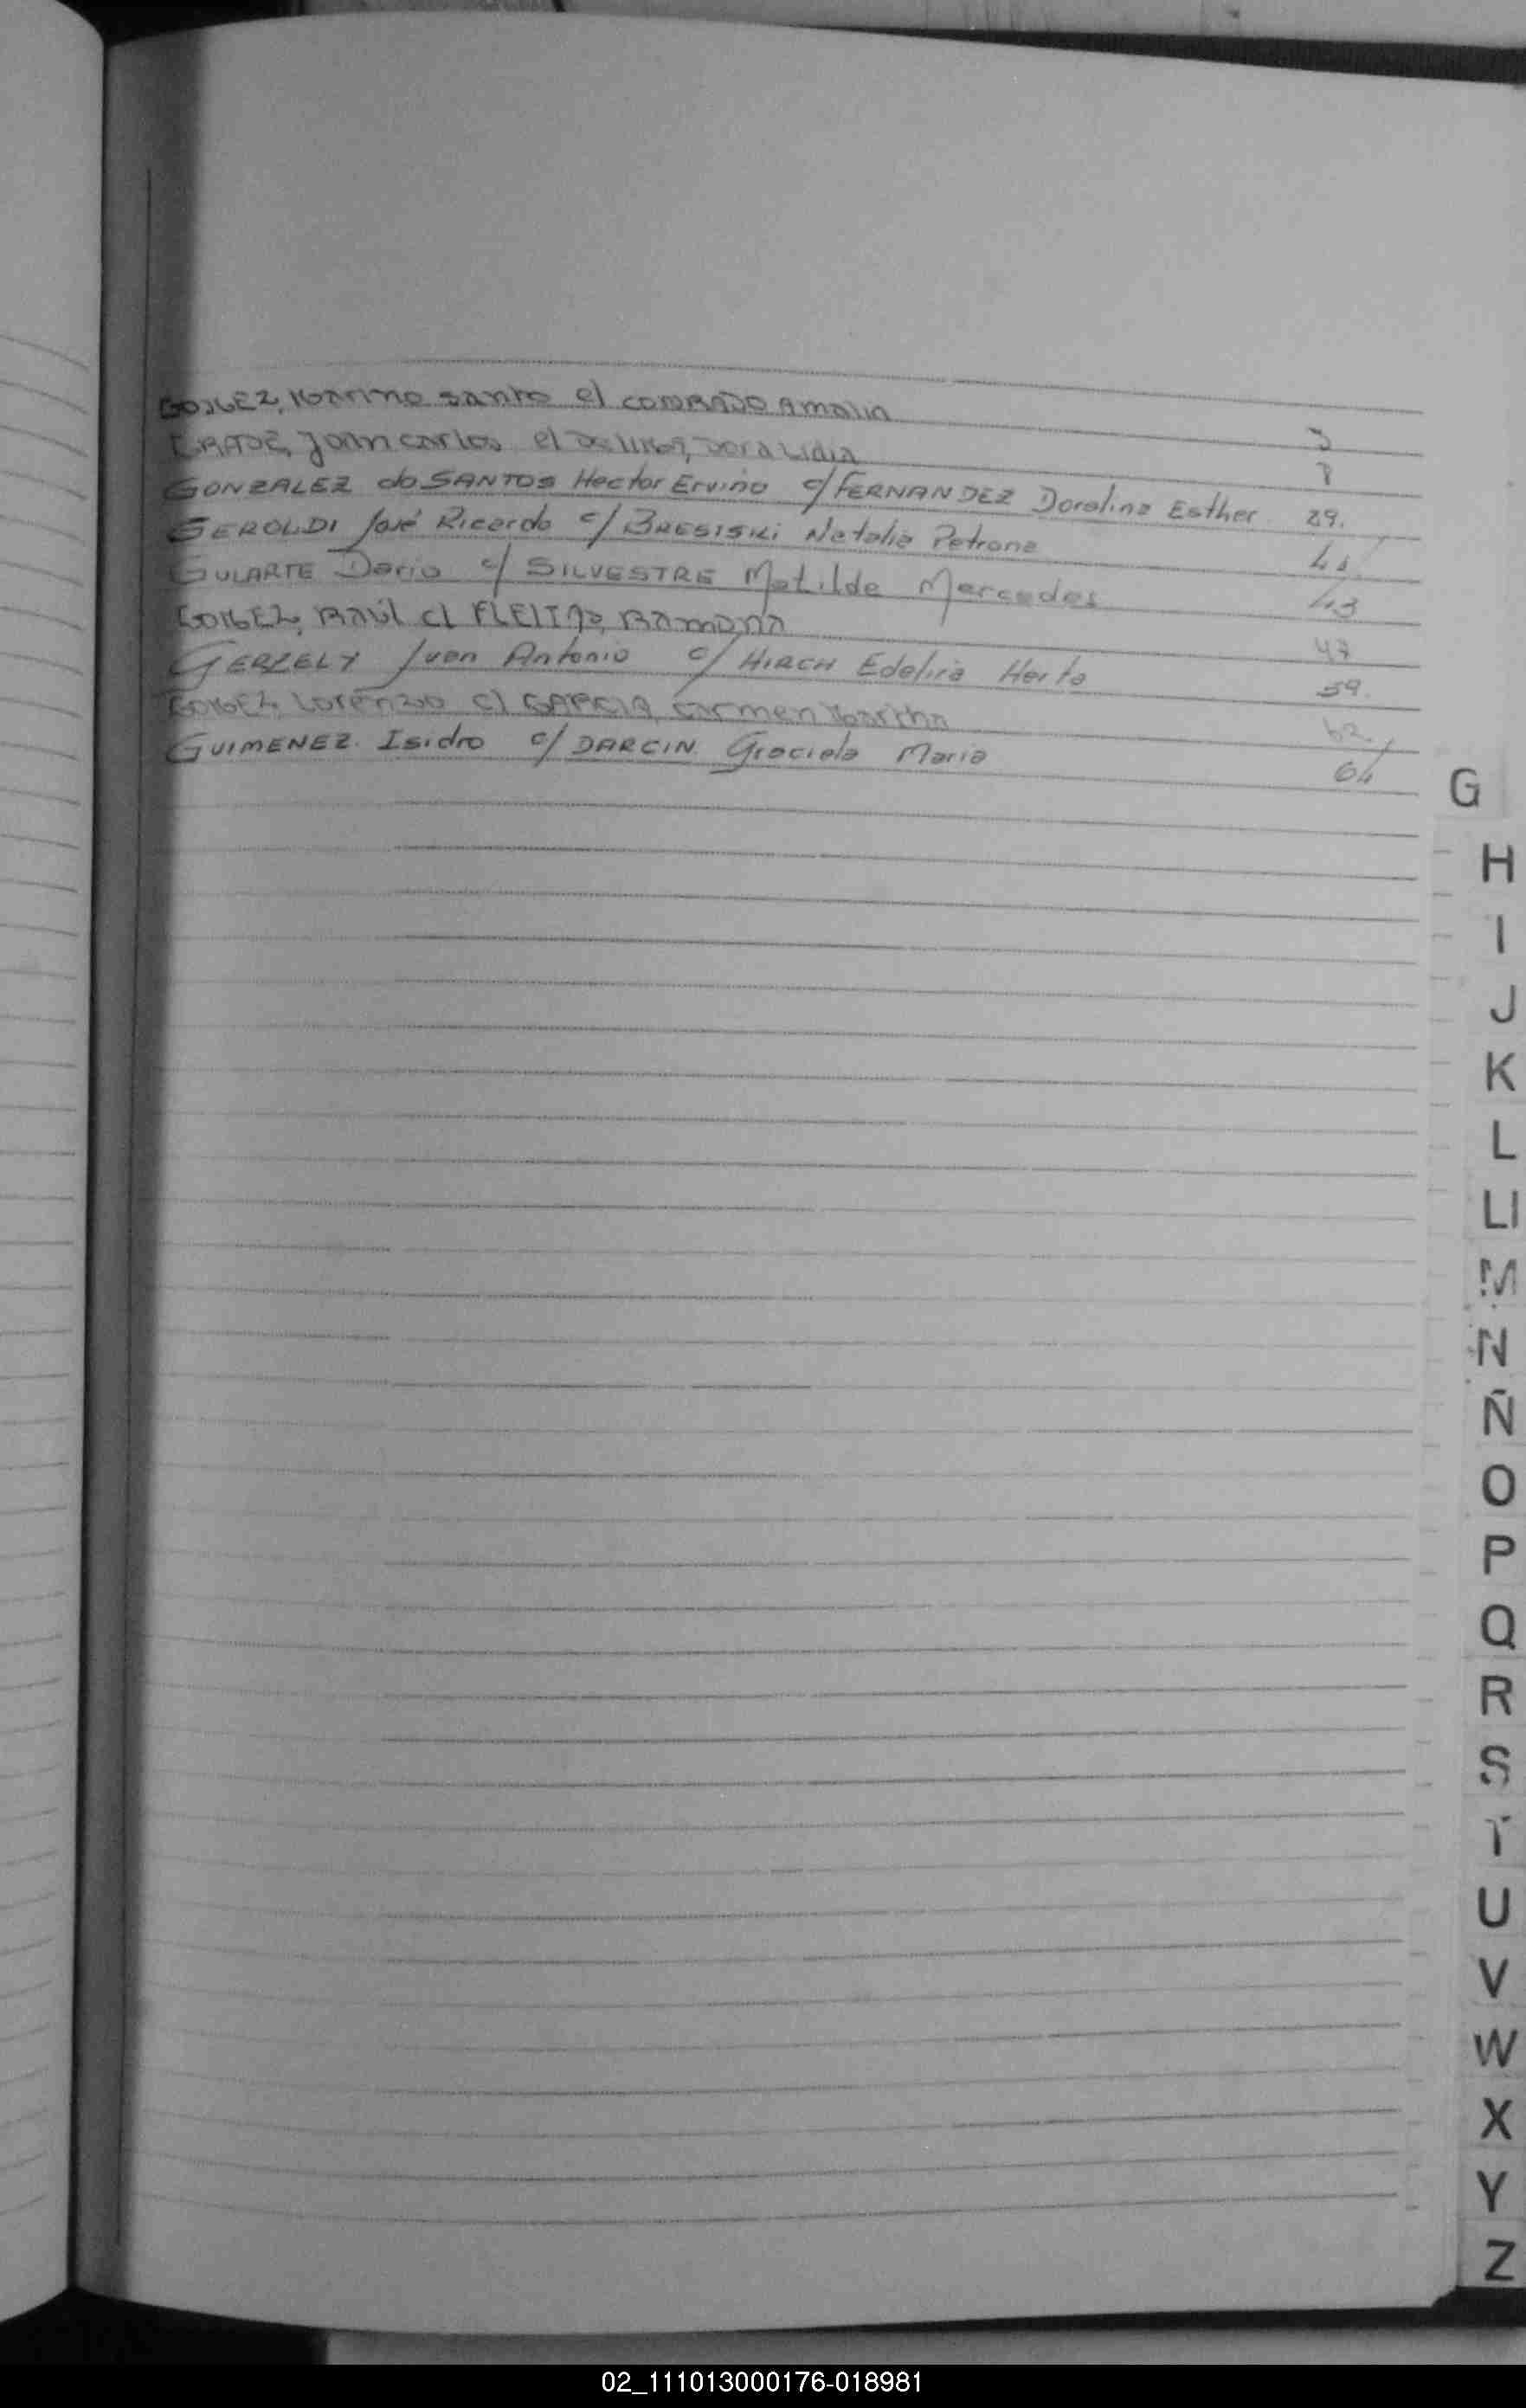 GOMEZ, Marino santo c/ CONRADO Amalia 3
Juan carlos c/ Dora Lidia 8
GONZALEZ do SANTOS Hector Ervino c/ FERNANDEZ Doralina Esther 29.
GEROLDI José Ricardo c/ BRESISKI Natalia Petrona 41
GULARTE Dario c/ SILVESTRE Matilde Mercedes 43
GOMEZ, RAÚL c/ FLEITAS, RAMONA 47
GERZELY Juan Antonio c/ HIRCH Edelira Herta 59.
GOMEZ, Lorenzo c/ GARCIA, carmen Martha 62.
GUIMENEZ. Isidro c/ DARCIN. Graciela Maria 64
G
H
I
J
K
L
Ll
M
N
Ñ
O
P
Q
R
S
T
U
V
W
X
Y
Z
02_111013000176-018981